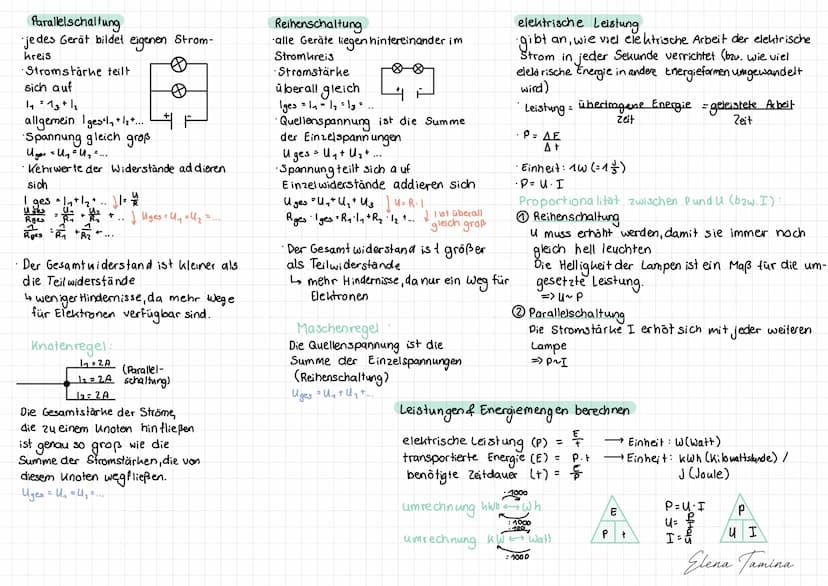 Parallelschaltung
· jedes Gerät bildet eigenen Strom-
kreis
· Stromstärke teilt
sich auf
I₁ = I₃ + I₂
allgemein Iges = I₁ + I₂ + ...
· Spannung gleich groß
Uges = U₁ = U₂ = ...
· Kehrwerte der Widerstände addieren
sich
I ges = I₁ + I₂ + .. ↓ I = U/R
Uges/Rges = U₁/R₁ + U₂/R₂ + .. ↓ Uges = U₁ = U₂ = ...
1/Rges = 1/R₁ + 1/R₂ + ...
· Der Gesamtwiderstand ist kleiner als
die Teilwiderstände
↳ weniger Hindernisse, da mehr Wege
für Elektronen verfügbar sind.
Knotenregel:
I₁ = 2A
I₂ = 2A
I₃ = 2A
(Parallel-
schaltung)
Die Gesamtstärke der Ströme,
die zu einem Knoten hinfließen
ist genau so groß wie die
Summe der Stromstärken, die von
diesem Knoten wegfließen.
Uges = U₁ = U₂ = ...
Reihenschaltung
· alle Geräte liegen hintereinander im
Stromkreis
· Stromstärke
überall gleich
Iges = I₁ = I₂ = I₃ = ..
· Quellenspannung ist die Summe
der Einzelspannungen
Uges = U₁ + U₂ + ...
· Spannung teilt sich auf
Einzelwiderstände addieren sich
Uges = U₁ + U₂ + U₃ ↓ U = R · I
Rges · Iges = R₁ · I₁ + R₂ · I₂ + ... ↓ I ist überall
gleich groß
· Der Gesamtwiderstand ist größer
als Teilwiderstände
↳ mehr Hindernisse, da nur ein Weg für
Elektronen
Maschenregel
Die Quellenspannung ist die
Summe der Einzelspannungen
(Reihenschaltung)
Uges = U₁ + U₂ + ...
elektrische Leistung
· gibt an, wie viel elektrische Arbeit der elektrische
Strom in jeder Sekunde verrichtet (bzw. wie viel
elektrische Energie in andere Energieformen umgewandelt
wird)
· Leistung = übertragene Energie / Zeit = geleistete Arbeit / Zeit
· P = ΔE / Δt
· Einheit: 1W (= 1 J/s)
· P = U · I
Proportionalität zwischen P und U (bzw. I):
① Reihenschaltung
U muss erhöht werden, damit sie immer noch
gleich hell leuchten
Die Helligkeit der Lampen ist ein Maß für die um-
gesetzte Leistung.
=> U ~ P
② Parallelschaltung
Die Stromstärke I erhöt sich mit jeder weiteren
Lampe
=> P ~ I
Leistungen & Energiemengen berechnen
elektrische Leistung (P) = E/t → Einheit: W (Watt)
transportierte Energie (E) = P · t → Einheit: kWh (Kilowattstunde) /
benötigte Zeitdauer (t) = E/P J (Joule)
· 1000
umrechnung kWh ↔ Wh
: 1000
· 1000
umrechnung kW ↔ Watt
: 1000
E
P t
P = U · I
U = P/I
I = P/U
P
U I
Elena Tamina